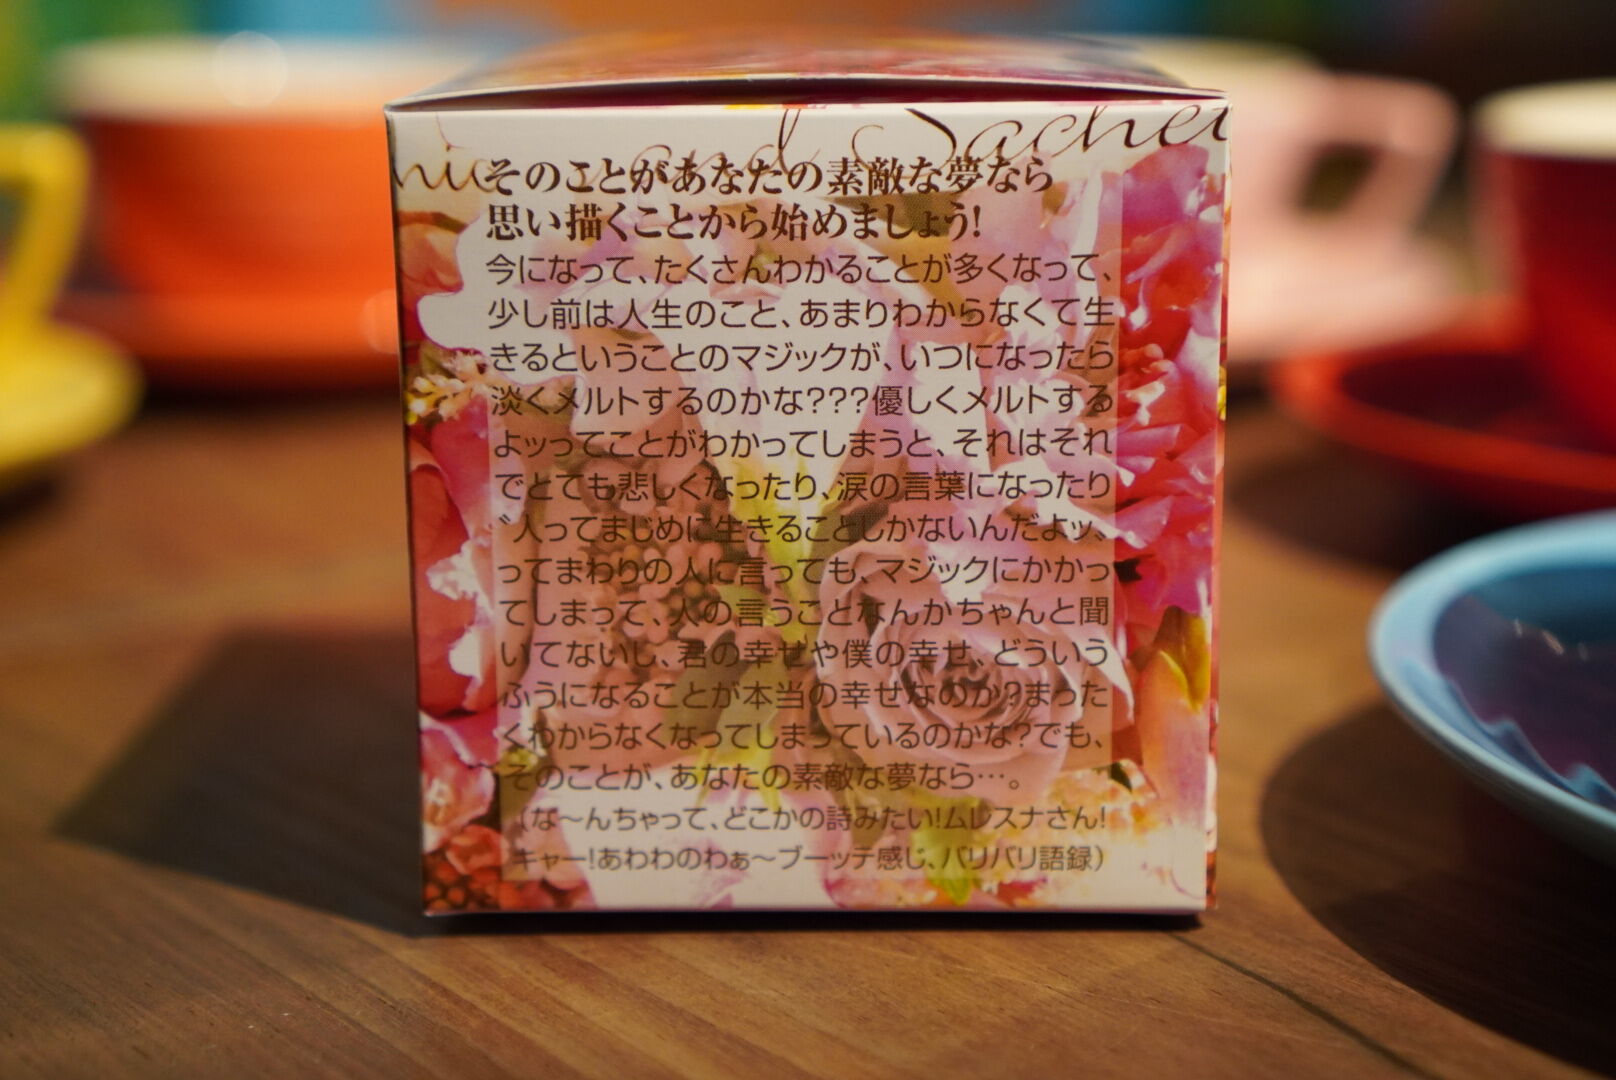 and Sachet
そのことがあなたの素敵な夢なら
思い描くことから始めましょう!
今になって、たくさんわかることが多くなって、
少し前は人生のこと、あまりわからなくて生
きるということのマジックが、いつになったら
淡くメルトするのかな???優しくメルトする
よッってことがわかってしまうと、それはそれ
でとても悲しくなったり、涙の言葉になったり
〝人ってまじめに生きることしかないんだよッ〟
ってまわりの人に言っても、マジックにかかっ
てしまって、人の言うことなんかちゃんと聞
いてないし、君の幸せや僕の幸せ、どういう
ふうになることが本当の幸せなのか?まった
くわからなくなってしまっているのかな?でも、
そのことが、あなたの素敵な夢なら…。
(な〜んちゃって、どこかの詩みたい!ムレスナさん!
キャー!あわわのわぁ〜ブーッテ感じ、バリバリ語録)